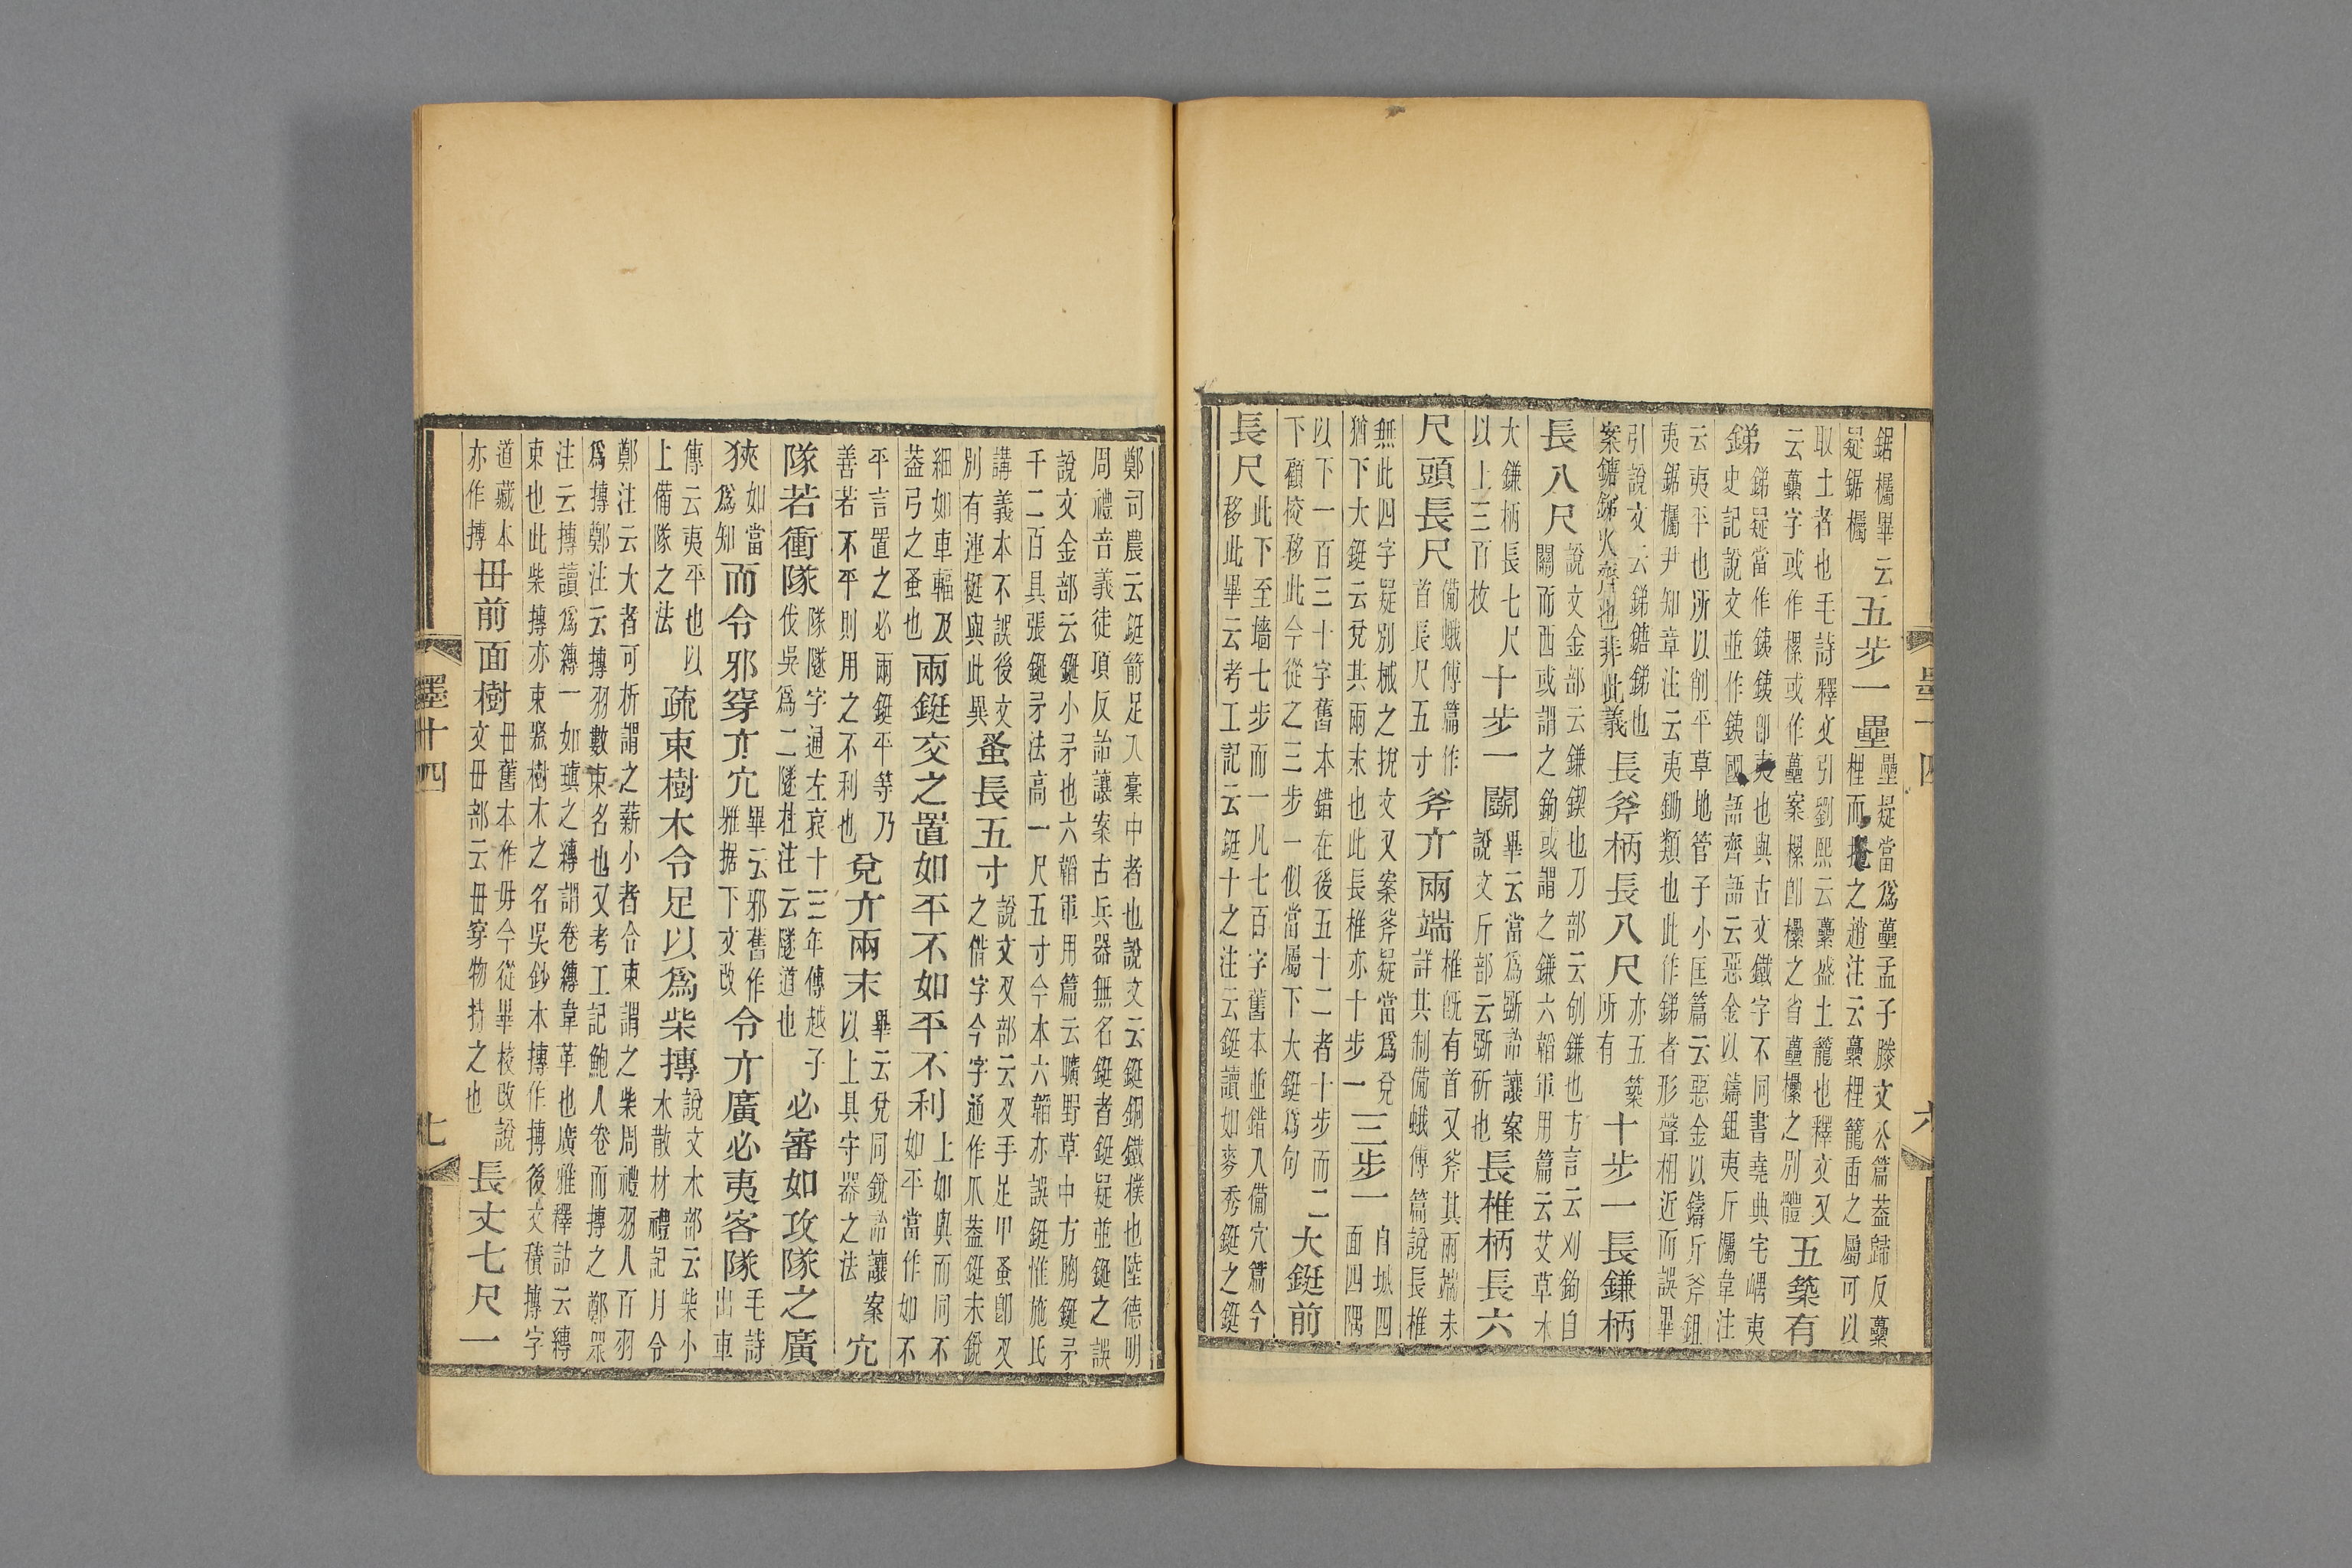 鋸欘畢云疑鋸欘五步一壘壘疑當爲虆孟子滕文公篇蓋歸反虆梩而掩之趙注云虆梩籠臿之屬可以
取土者也毛詩釋文引劉熙云虆盛土籠也釋文又云虆字或作樏或作虆案樏卽欙之省虆欙之別體五築有
銻銻疑當作銕銕卽夷也與古文鐵字不同書堯典宅嵎夷史記說文並作銕國語齊語云惡金以鑄鉏夷斤欘韋注
云夷平也所以削平草地管子小匡篇云惡金以鑄斤斧鉏夷鋸欘尹知章注云夷鋤類也此作銻者形聲相近而誤畢
引說文云銻鎕銻也案鎕銻火齊也非此義長斧柄長八尺亦五築所有十步一長鎌柄
長八尺說文金部云鎌鍥也刀部云刨鎌也方言云刈鉤自關而西或謂之鉤或謂之鎌六韜軍用篇云艾草木
大鎌柄長七尺以上三百枚十步一鬭畢云當爲斲詒讓案說文斤部云斲斫也長椎柄長六
尺頭長尺備蛾傅篇作首長尺五寸斧亓兩端椎旣有首又斧其兩端未詳其制備蛾傅篇說長椎
無此四字疑別械之挩文又案斧疑當爲兌猶下大鋌云兌其兩末也此長椎亦十步一三步一自城四面四隅
以下一百三十字舊本錯在後五十二者十步而二下顧校移此今從之三步一似當屬下大鋌爲句大鋌前
長尺此下至墻七步而一凡七百字舊本並錯入備穴篇今移此畢云考工記云鋌十之注云鋌讀如麥秀鋌之鋌
墨十四
六
鄭司農云鋌箭足入槀中者也說文云鋌銅鐵樸也陸德明周禮音義徒頂反詒讓案古兵器無名鋌者鋌疑並鋋之誤
說文金部云鋋小矛也六韜軍用篇云曠野草中方胸鋋矛千二百具張鋋矛法高一尺五寸今本六韜亦誤鋌惟施氏
講義本不誤後文別有連梃與此異蚤長五寸說文叉部云叉手足甲蚤卽叉之借字今字通作爪蓋鋌末銳
細如車輻及蓋弓之蚤也兩鋌交之置如平不如平不利上如與而同不如平當作如不
平言置之必兩鋌平等乃善若不平則用之不利也兌亓兩末畢云兌同銳詒讓案以上具守器之法穴
隊若衝隊隊隧字通左哀十三年傳越子伐吳爲二隧杜注云隧道也必審如攻隊之廣
狹如當爲知而令邪穿亓穴畢云邪舊作雅据下文改令亓廣必夷客隊毛詩出車
傳云夷平也以上備隊之法疏束樹木令足以爲柴摶說文木部云柴小木散材禮記月令
鄭注云大者可析謂之薪小者合束謂之柴周禮羽人百羽爲摶鄭注云摶羽數束名也又考工記鮑人卷而摶之鄭眾
注云摶讀爲縳一如瑱之縳謂卷縳韋革也廣雅釋詁云縳束也此柴摶亦束聚樹木之名吳鈔木摶作摶後文積摶字
道藏本亦作摶毌前面樹毌舊本作毋今從畢校改說文毌部云毌穿物持之也長丈七尺一
墨十四
七